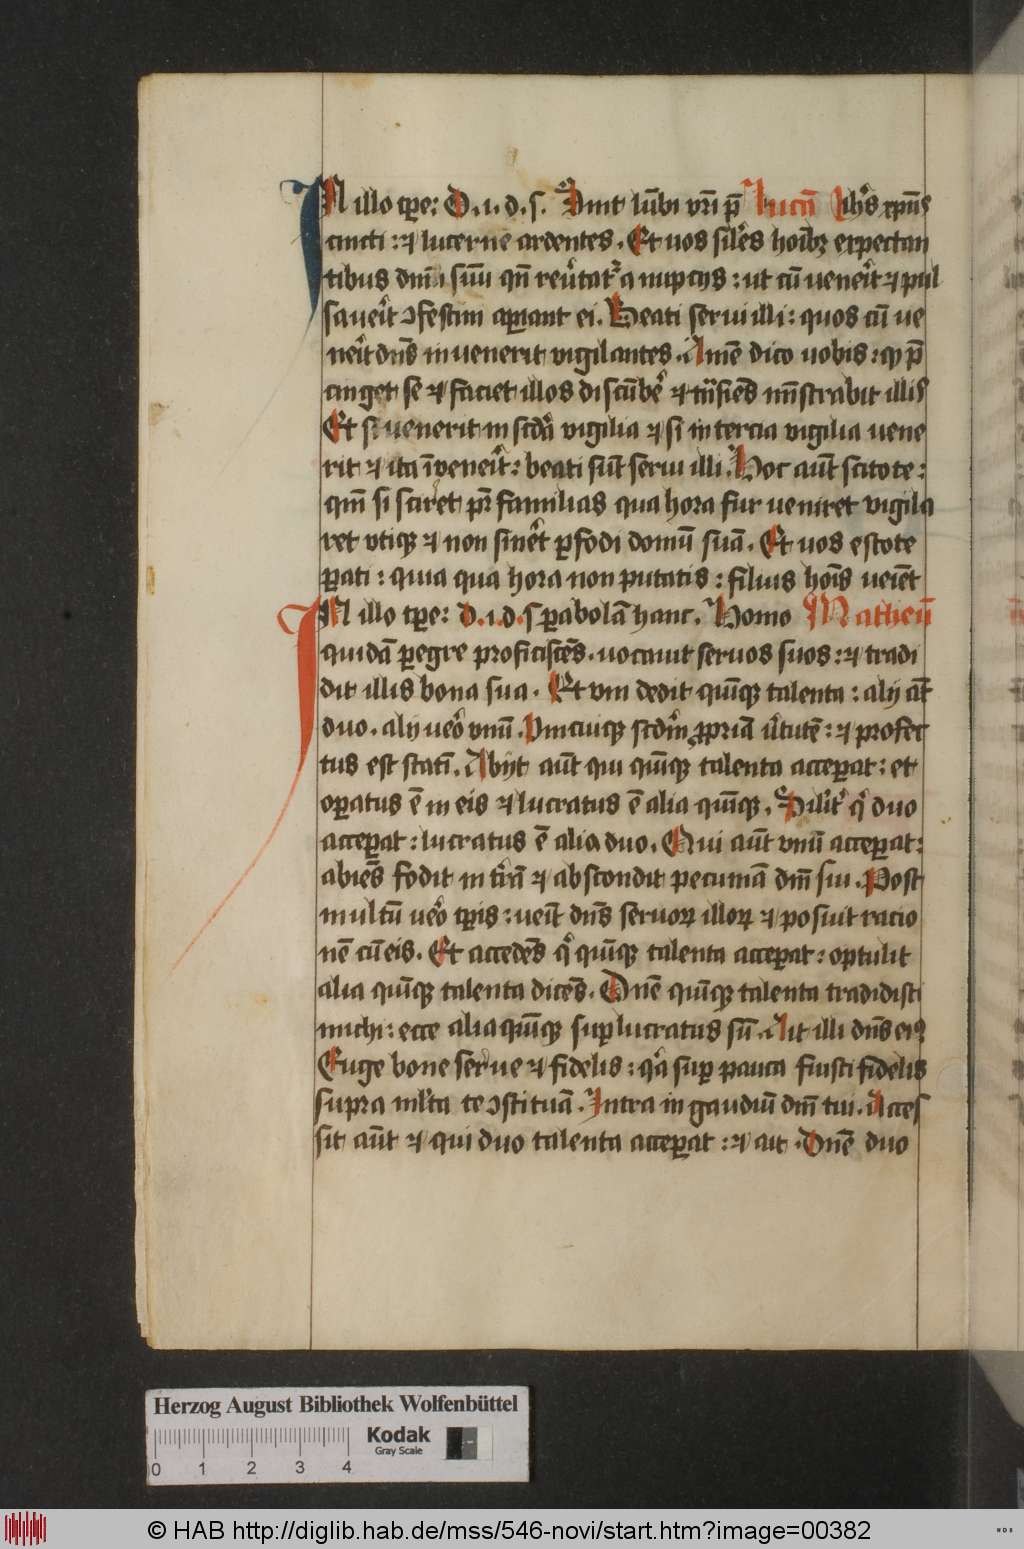 IN illo tp̄re: D.i.d.s. Sint lūbi vr̄i p̄ Lucā Ih̄s xp̄us
cincti: ⁊ lucerne ardentes. Et uos sil̄es hoībꝫ expectan
tibus dn̄m suū qn̄ reu̾tat᷑ a nupcijs: ut cū uene̾it ⁊ pul
saue̾it ↄfestim aꝑiant ei. Beati serui illi: quos cū ue
ne̾it dn̄s inuenerit vigilantes. Amē dico uobis: qꝫ p̄
cinget se ⁊ faciet illos discūbe̾ ⁊ tn̄siēs mīstrabit illis
Et si uenerit in scd̄a vigilia ⁊ si in tercia vigilia uene
rit ⁊ ita īuene̾it: beati sūt serui illi. Hoc aūt scitote:
qm̄ si sciret pr̄ familias qua hora fur ueniret vigila
ret vtiqꝫ ⁊ non sine̾t ꝑfodi domū suā. Et uos estote
ꝑati: quia qua hora non putatis: filius hoīs ueiēt
IN illo tp̄re: d.i.d.s ꝑabolā hanc. Homo Matheū
quidā ꝑegre proficiscēs. uocauit seruos suos: ⁊ tradi
dit illis bona sua. Et vni dedit quīqꝫ talenta: alij āt
duo. alij ueo̾ vnū. Vnicuiqꝫ scd̄m ꝓpriā u̾tutē: ⁊ profec
tus est statī. Abijt aūt qui quīqꝫ talenta acceꝑat: et
oꝑatus ē in eis ⁊ lucratus ē alia quīqꝫ. Sil̾it̾ q̾ duo
acceꝑat: lucratus ē alia duo. Qui aūt vnū acceꝑat:
abiēs fodit in t̾rā ⁊ abscondit pecuniā dn̄i sui. Post
multū ueo̾ tꝑis: ueīt dn̄s seruoꝝ illoꝝ ⁊ posuit racio
nē cū eis. Et accedēs q̾ quīqꝫ talenta acceꝑat: optulit
alia quīqꝫ talenta dicēs. Dn̄e quīqꝫ talenta tradidisti
michi: ecce alia quīqꝫ suꝑlucratus sū. Ait illi dn̄s eiꝰ
Euge bone serue ⁊ fidelis: qa̾ suꝑ pauca fuisti fidelis
supra ml̾ta te ↄstituā. Intra in gaudiū dn̄i tui. Acces
sit aūt ⁊ qui duo talenta acceꝑat: ⁊ ait. Dn̄e duo
Herzog August Bibliothek Wolfenbüttel
Kodak
Gray Scale
0 1 2 3 4
© HAB http://diglib.hab.de/mss/546-novi/start.htm?image=00382